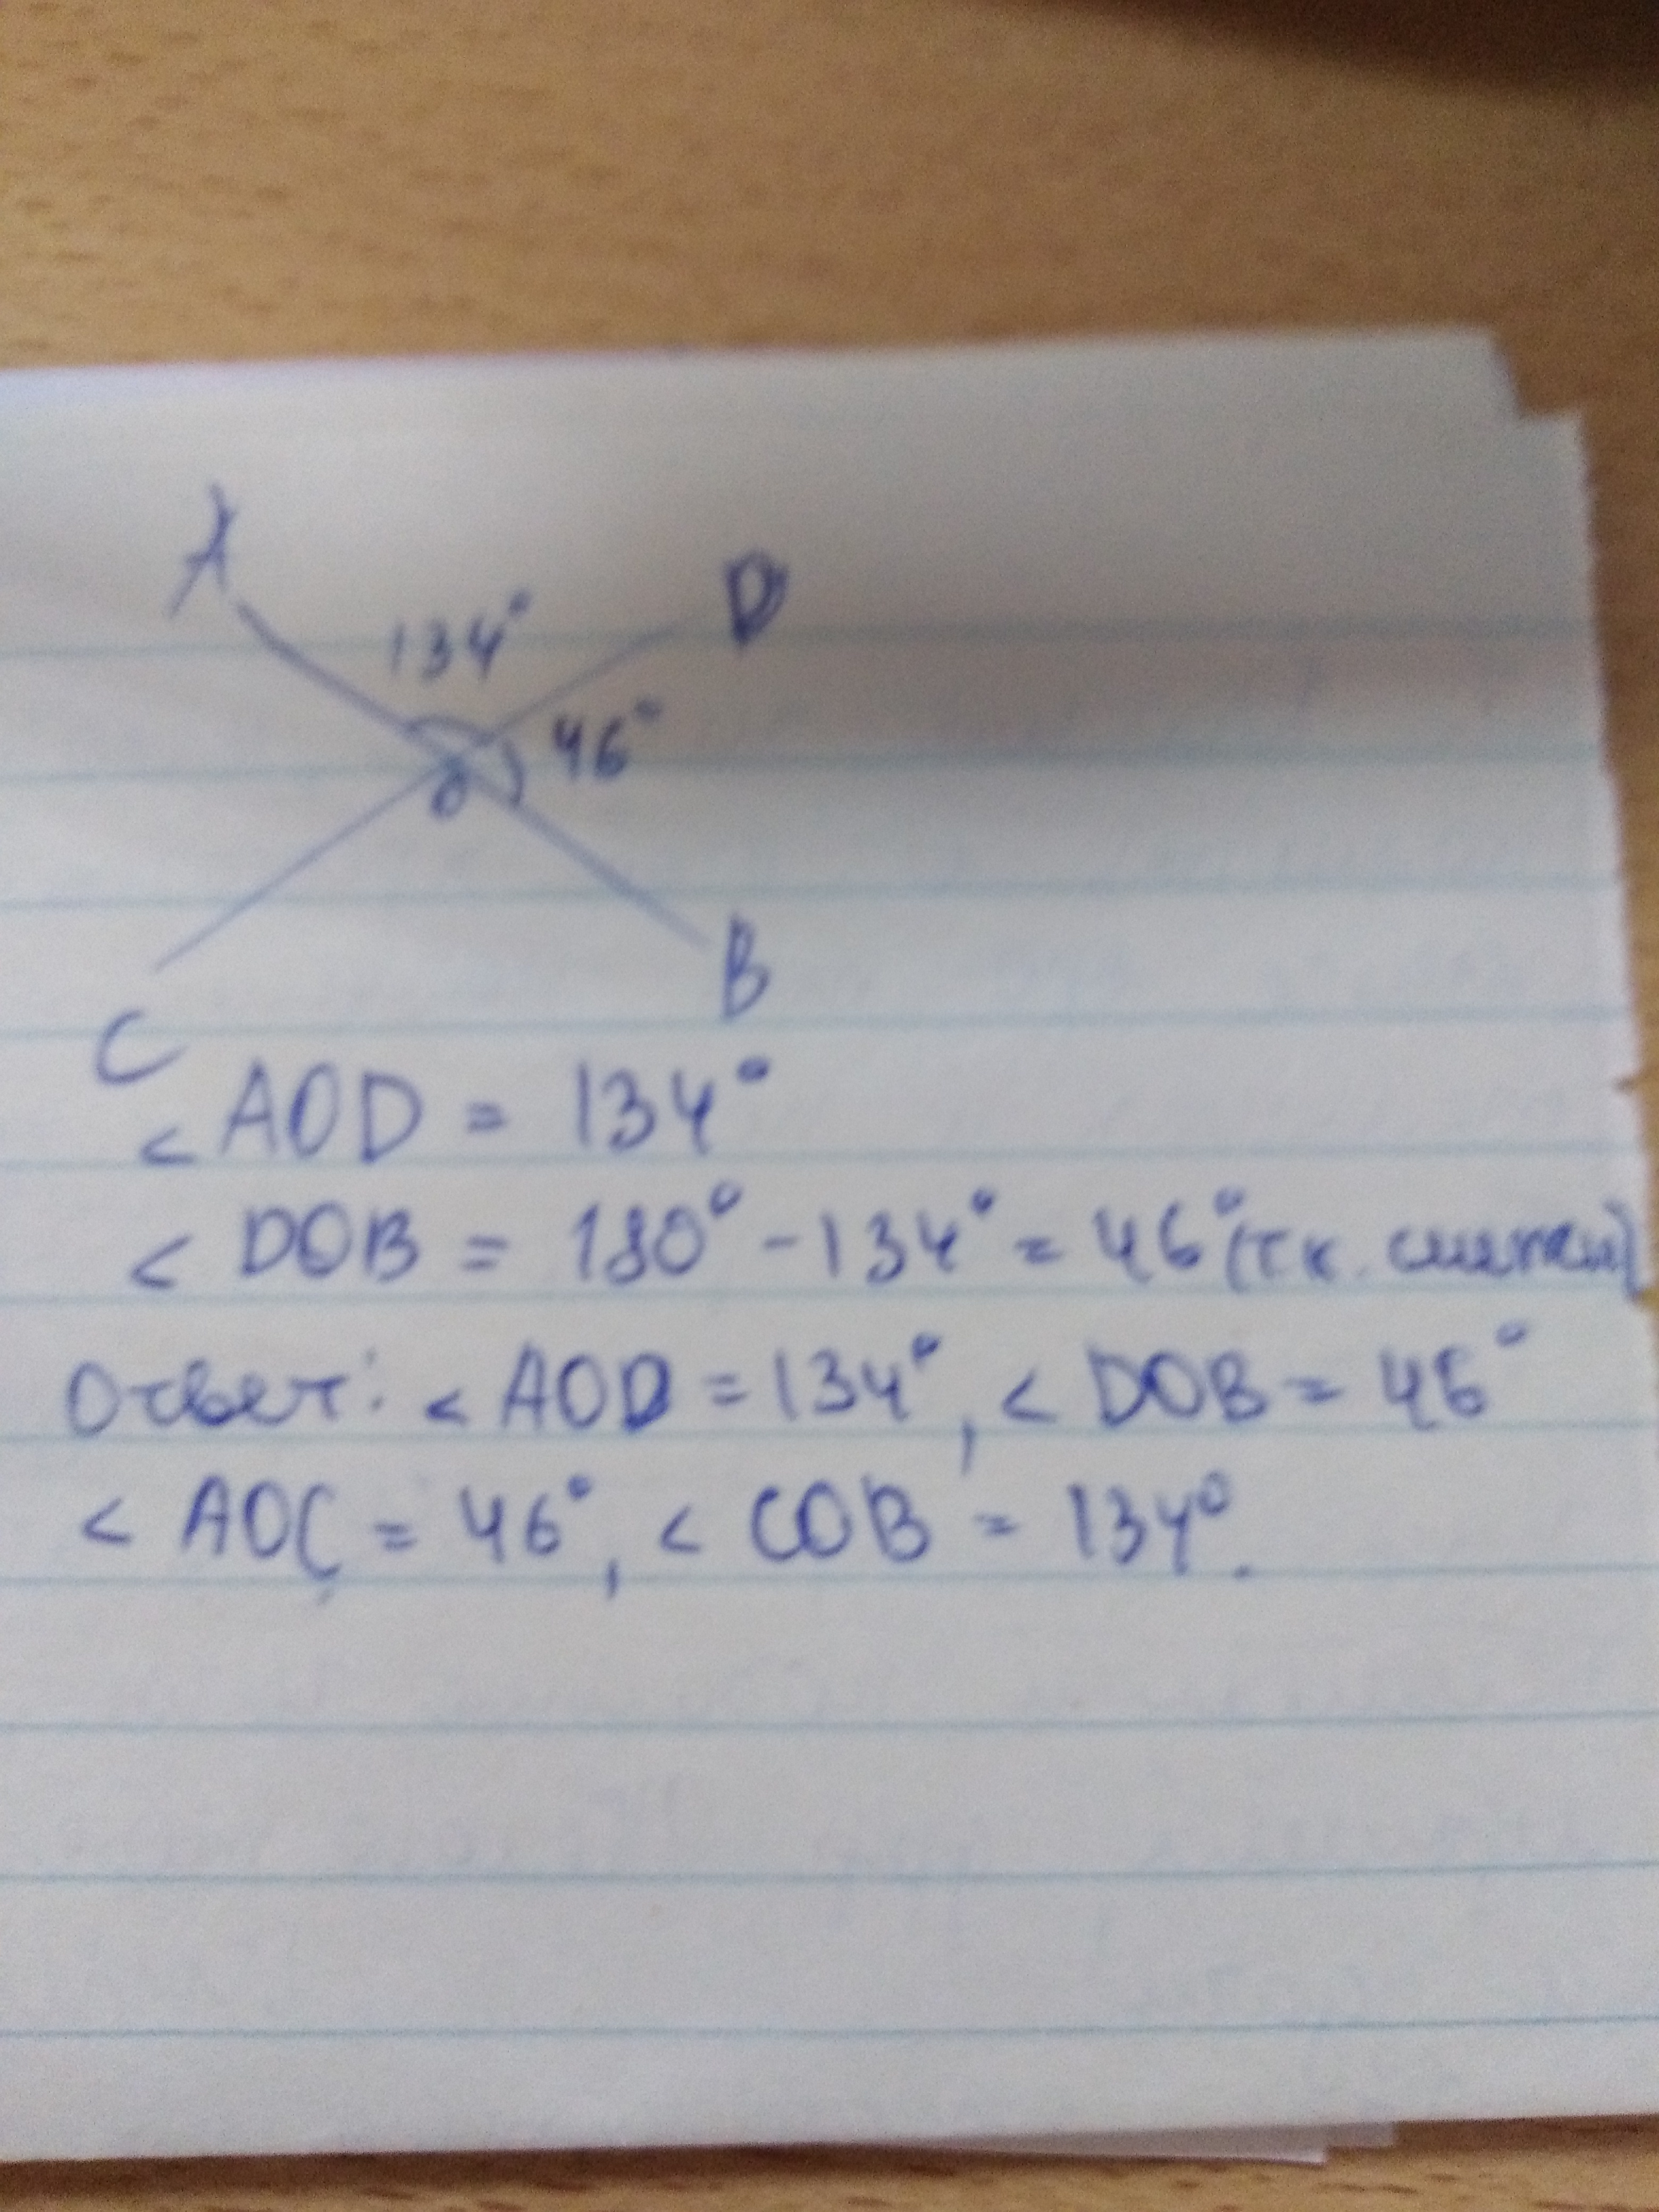 A
134°
D
46°
O
B
C
< AOD = 134°
< DOB = 180° - 134° = 46° (т.к. смежн)
Ответ: < AOD = 134°, < DOB = 46°
< AOC = 46°, < COB = 134°.